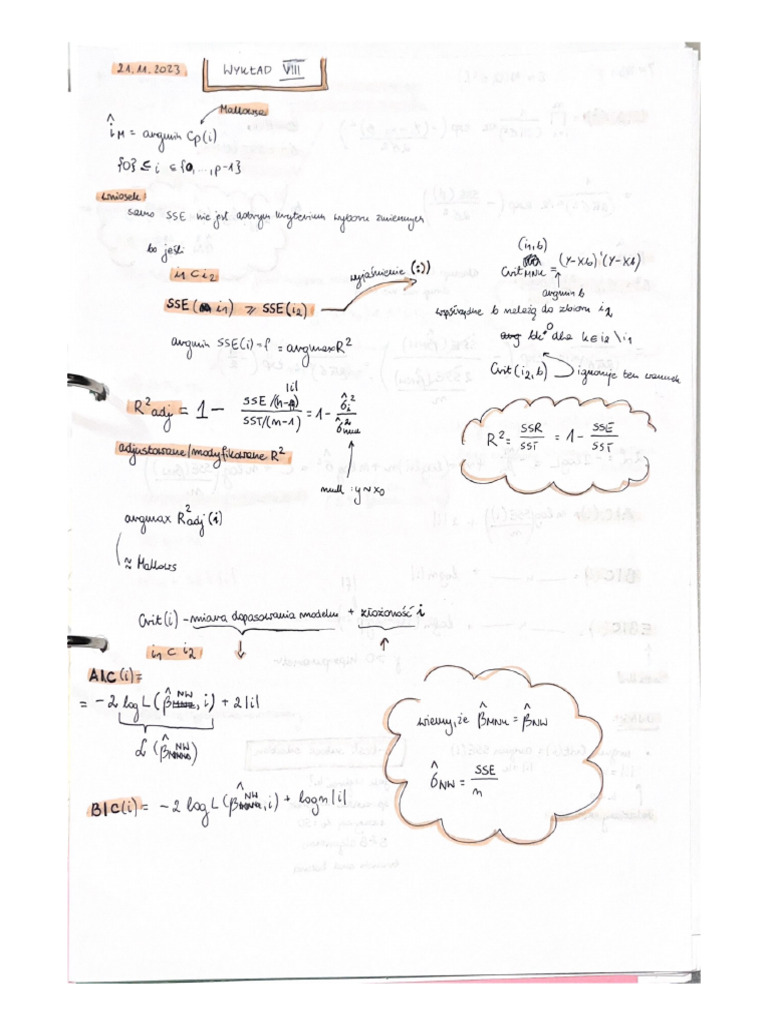 21.11.2023
WYKŁAD VIII
Mallowsa
î_M = argmin Cp(i)
{0} ⊆ i ⊆ {0,...,p-1}
Wniosek:
samo SSE nie jest dobrym kryterium wyboru zmiennych
bo jeśli
i₁ ⊂ i₂
SSE(i₁) ≥ SSE(i₂)
wyjaśnienie (:))
(i₁, b)
Crit_MNK = (Y-Xb)'(Y-Xb)
argmin b
współrzędne b należą do zbioru i₂
bk=0 dla k∈i₂\i₁
Crit(i₂,b) ignoruje ten warunek
argmin SSE(i)=f = argmax R²
R²adj = 1 - SSE/(n-|i|) / SST/(n-1) = 1 - σ̂²_i / σ̂²_null
adjustowane/modyfikowane R²
null : y~x₀
R² = SSR/SST = 1 - SSE/SST
argmax R²adj(i)
≈ Mallows
Crit(i) - miara dopasowania modelu + złożoność i
i₁ ⊂ i₂
AIC(i)=
= -2 log L(β̂^NW, i) + 2|i|
ℒ(β̂^NW)
wiemy, że β̂_MNK = β̂_NW
σ̂_NW = SSE/n
BIC(i) = -2 log L(β̂^NW, i) + log n|i|